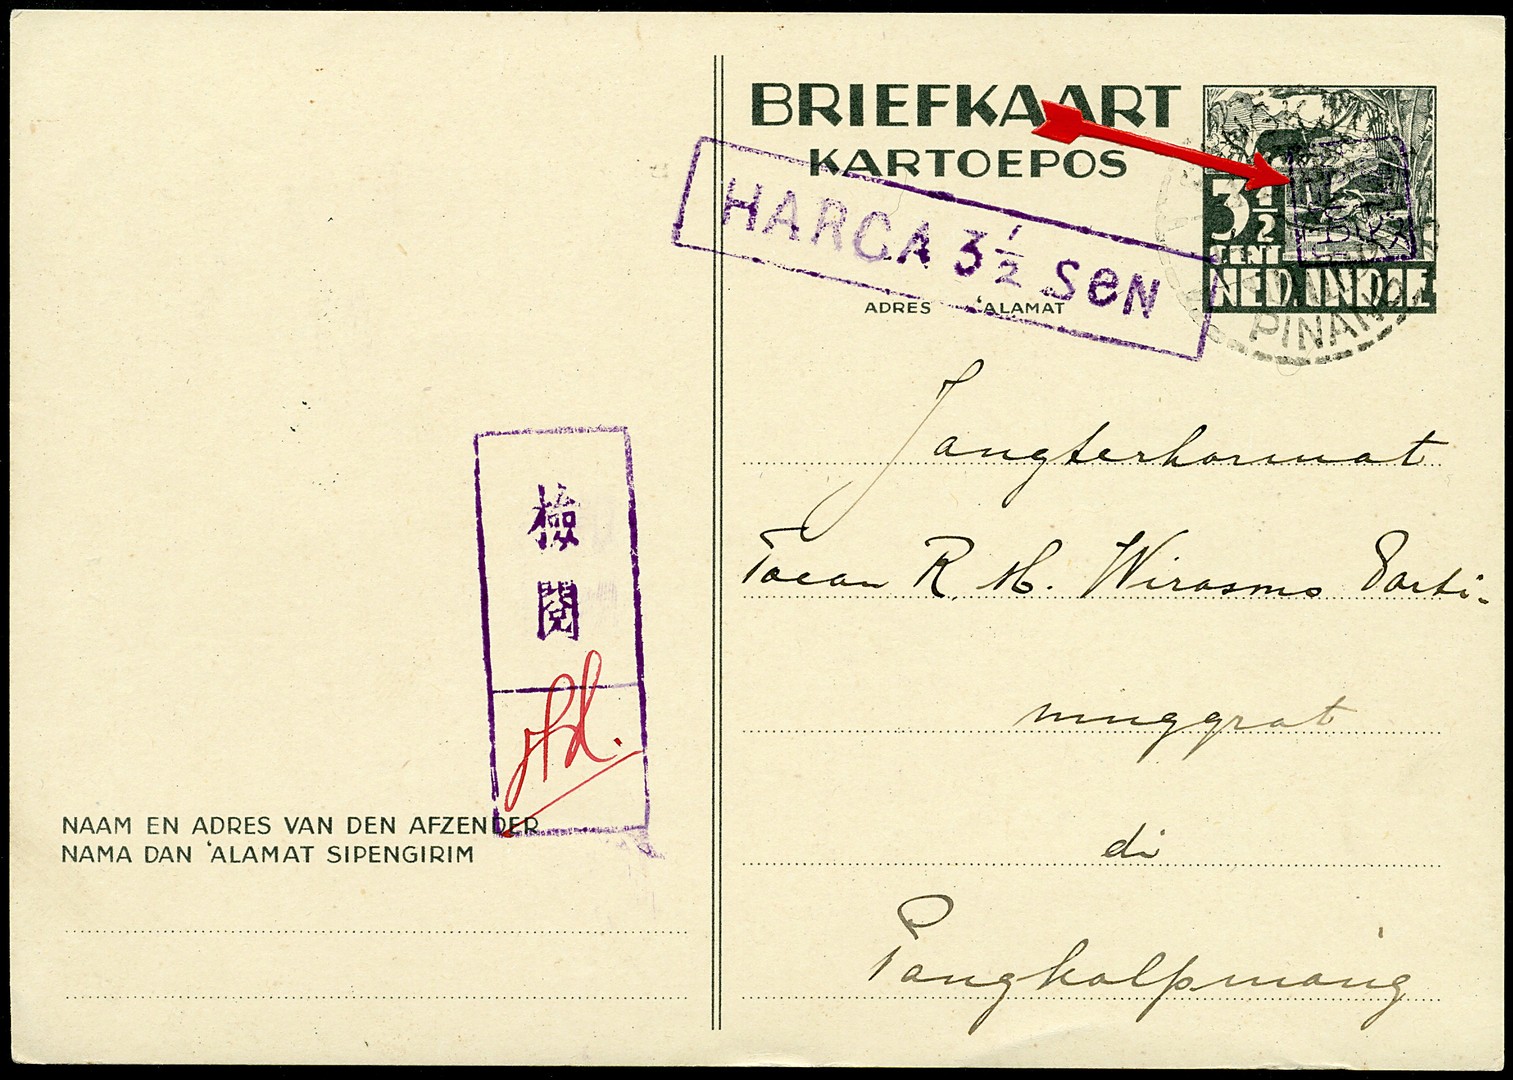 BRIEFKAART
KARTOEPOS
HARGA 3½ SeN
3½
CENT
NED. INDIE
PINANG
ADRES 'ALAMAT
Jangterhormat
Toean R. M. Wirasmo Parti-
ninggrat
di
Pangkalpinang
檢
閲
NAAM EN ADRES VAN DEN AFZENDER
NAMA DAN 'ALAMAT SIPENGIRIM